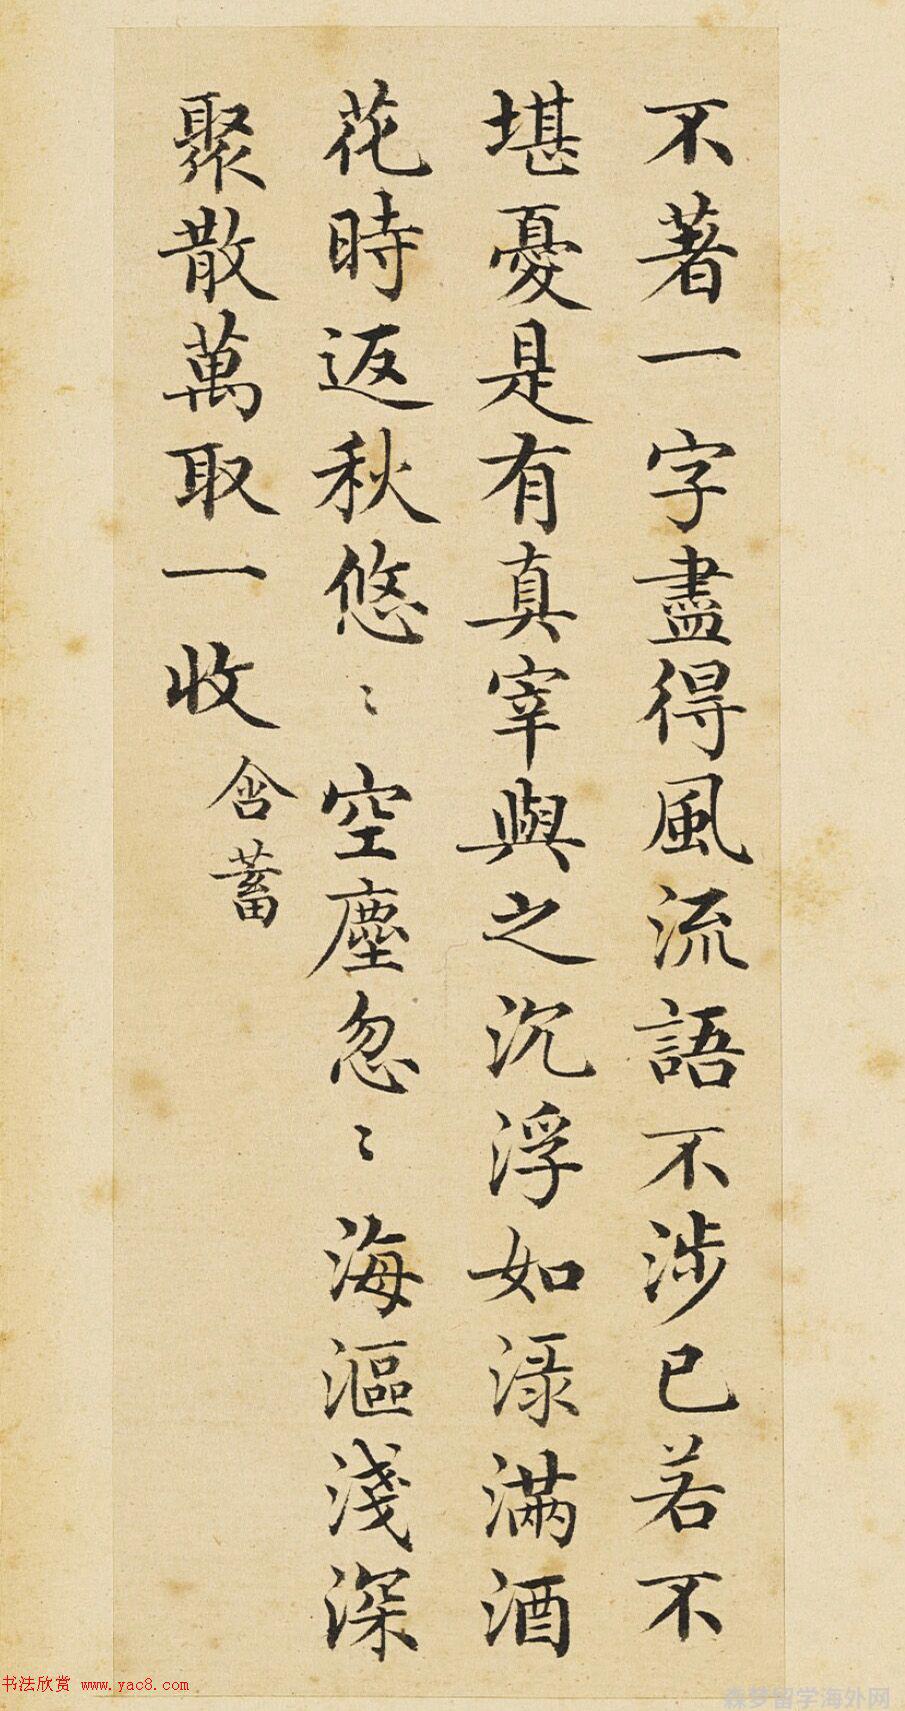 不著一字盡得風流語不涉已若不
堪憂是有真宰與之沉浮如淥滿酒
花時返秋悠〻空塵忽〻海漚淺深
聚散萬取一收
含蓄
书法欣赏 www.yac8.com
森梦留学海外网